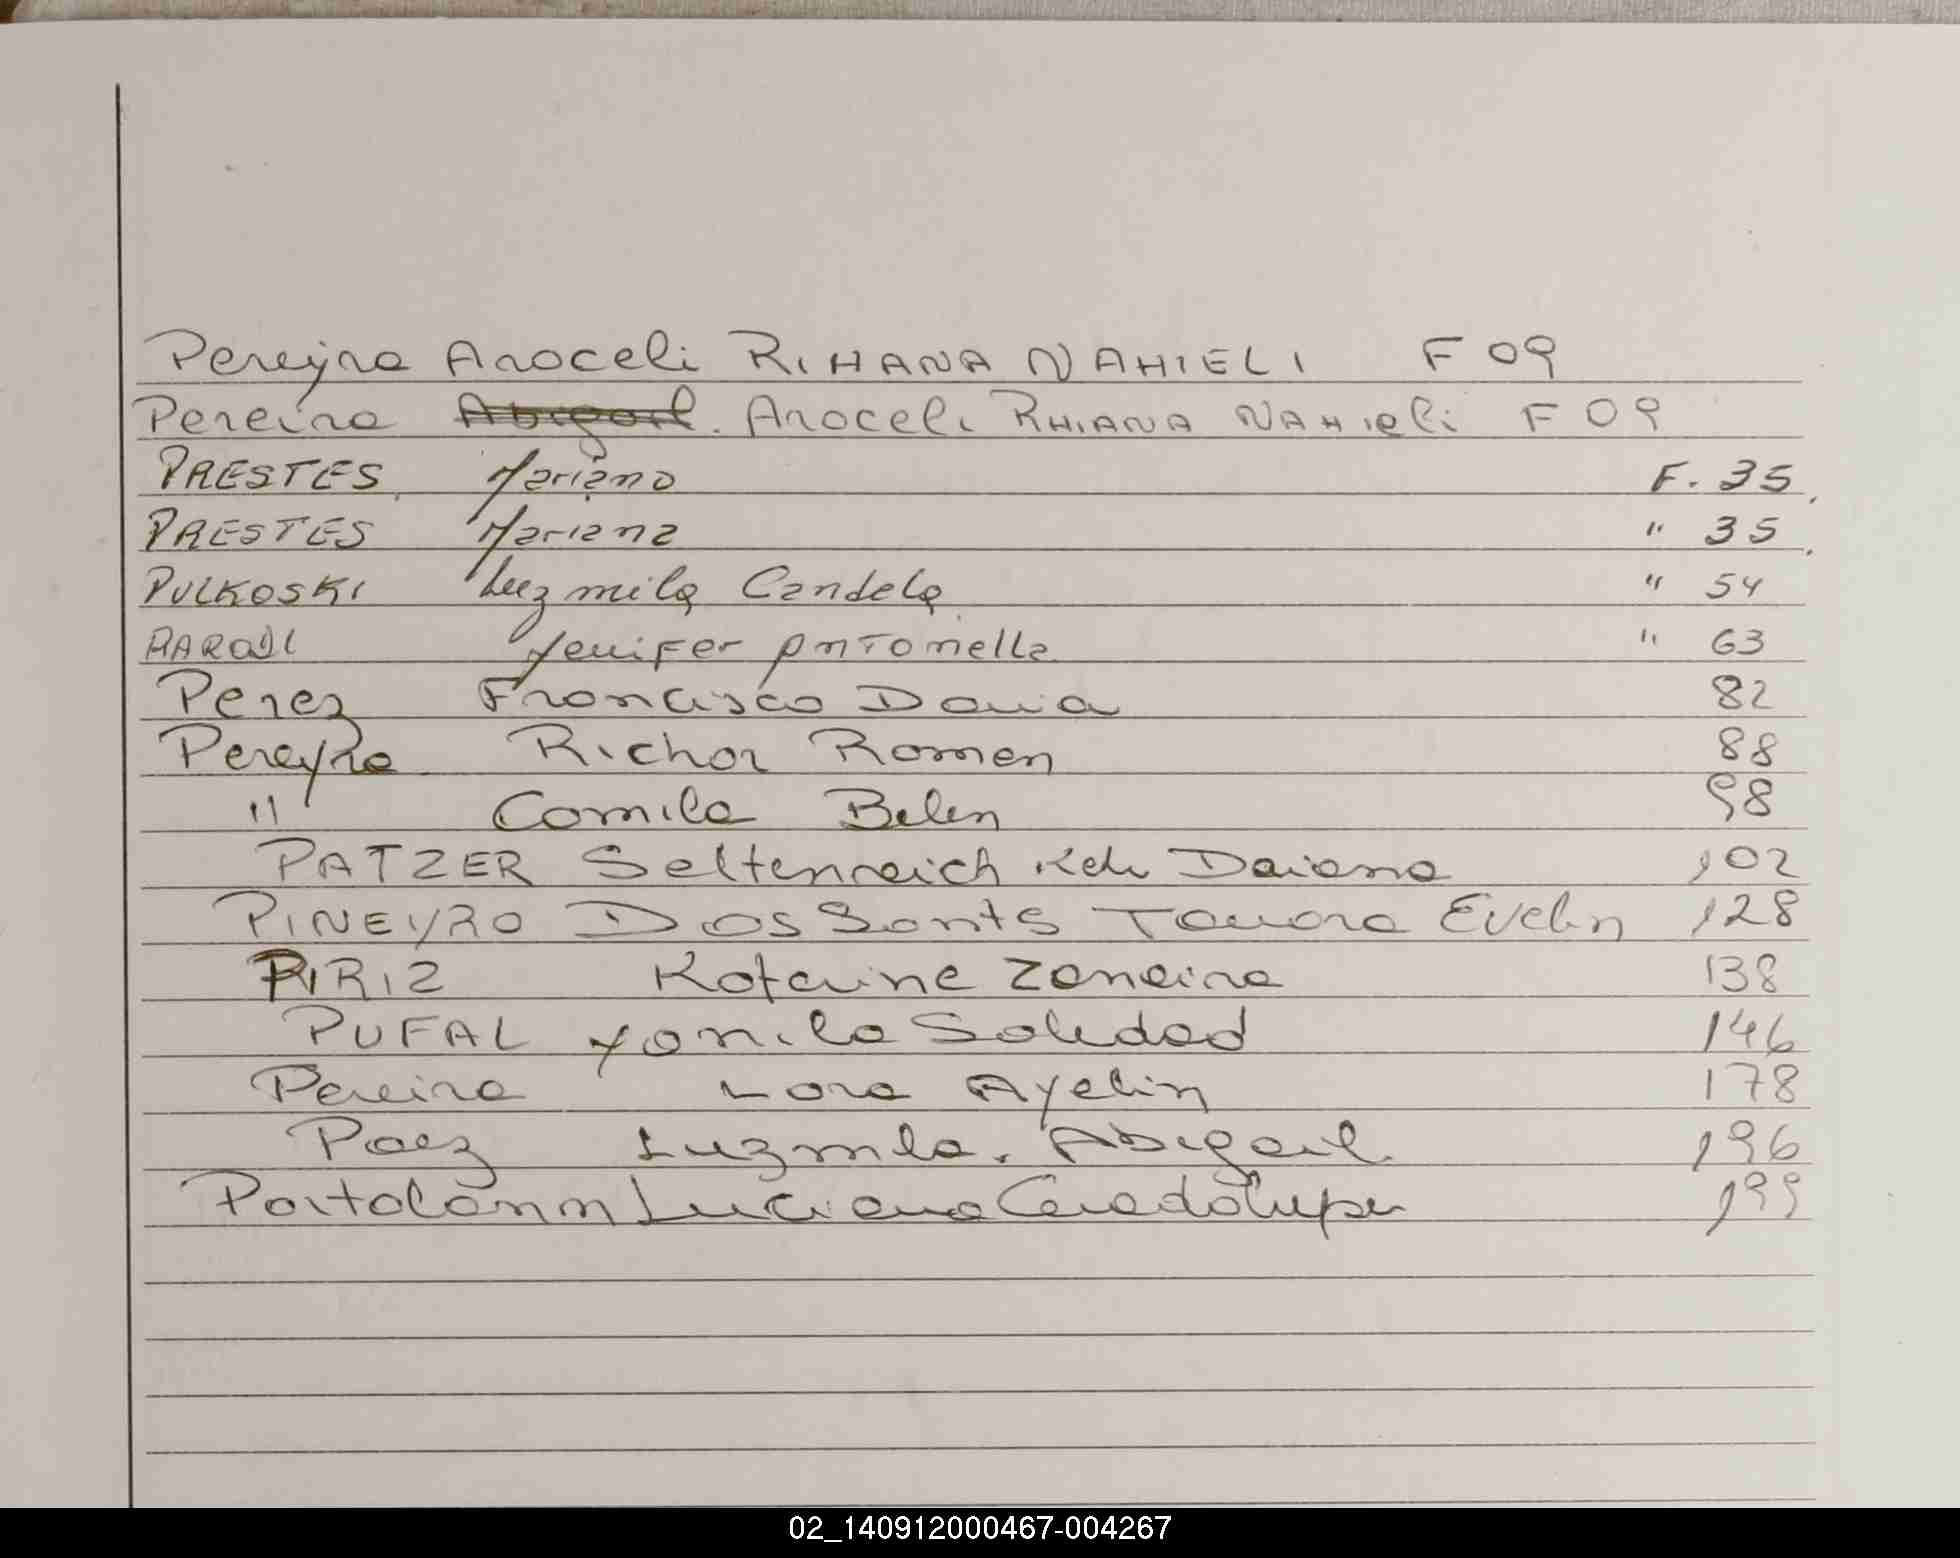 Pereyra Araceli RIHANA NAHIELI F 09
Pereira Abigail. Araceli RHIANA NAHIELI F 09
PRESTES Mariano F. 35
PRESTES Mariana " 35
PULKOSKI Luzmila Candela " 54
Jenifer Antonella " 63
Perez Francisco 82
Pereyra Richar Roman 88
" Camila Belen 98
PATZER Seltenreich Daiana 102
PINEYRO Dos Sants Evelin 128
138
PUFAL Yanila Soledad 146
Pereira Lara Ayelin 178
Paez Luzmla. Abigail 196
Luciana 199
02_140912000467-004267